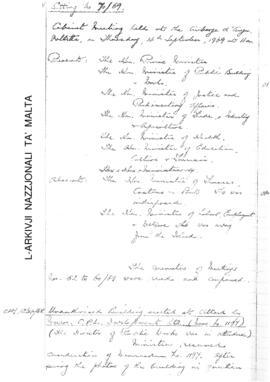 Sitting No 70/69.
Cabinet Meeting held at the Auberge d'
Valletta, on Thursday, September, 1969 at
Present: The Hon. Prime Minister
The Hon. Minister of Public Building
& Works.
The Hon. Minister of Justice and
Parliamentary Affairs.
The Hon. Minister of Trade, Industry
& Agriculture
The Hon. Minister of Health.
The Hon. Minister of Education,
Culture & Tourism.
Absent: The Hon. Minister of Finance,
Customs & Port who was
indisposed
The Hon. Minister of Labour, Employment
& Welfare who was away
from the Island.
The minutes of Meetings
Nos. 62 to 64/69 were read and confirmed.
Unauthorised Building erected at Attard by
Messrs. C.P.L. Development Ltd. (Memo No 1197)
(The Director of Public Works was in attendance)
Ministers resumed
consideration of Memorandum No. 1197. After
seeing the photos of the building in question
L-ARKIVJI NAZZJONALI TA' MALTA